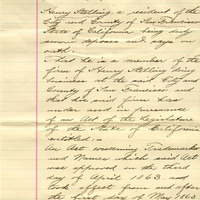 Henry Stelling a resident of the
City and County of San Francisco
State of California being duly
sworn deposes and says on
oath:
That he is a member of the
firm of Henry Stelling doing
business at the said City and
County of San Francisco and
that his said firm has
under and in pursuance
of an Act of the Legislature
of the State of California
entitled:
An Act concerning Trademarks
and Names which said Act
was approved on the third
day of April 1863 and
took effect from and after
the first day of May 1863